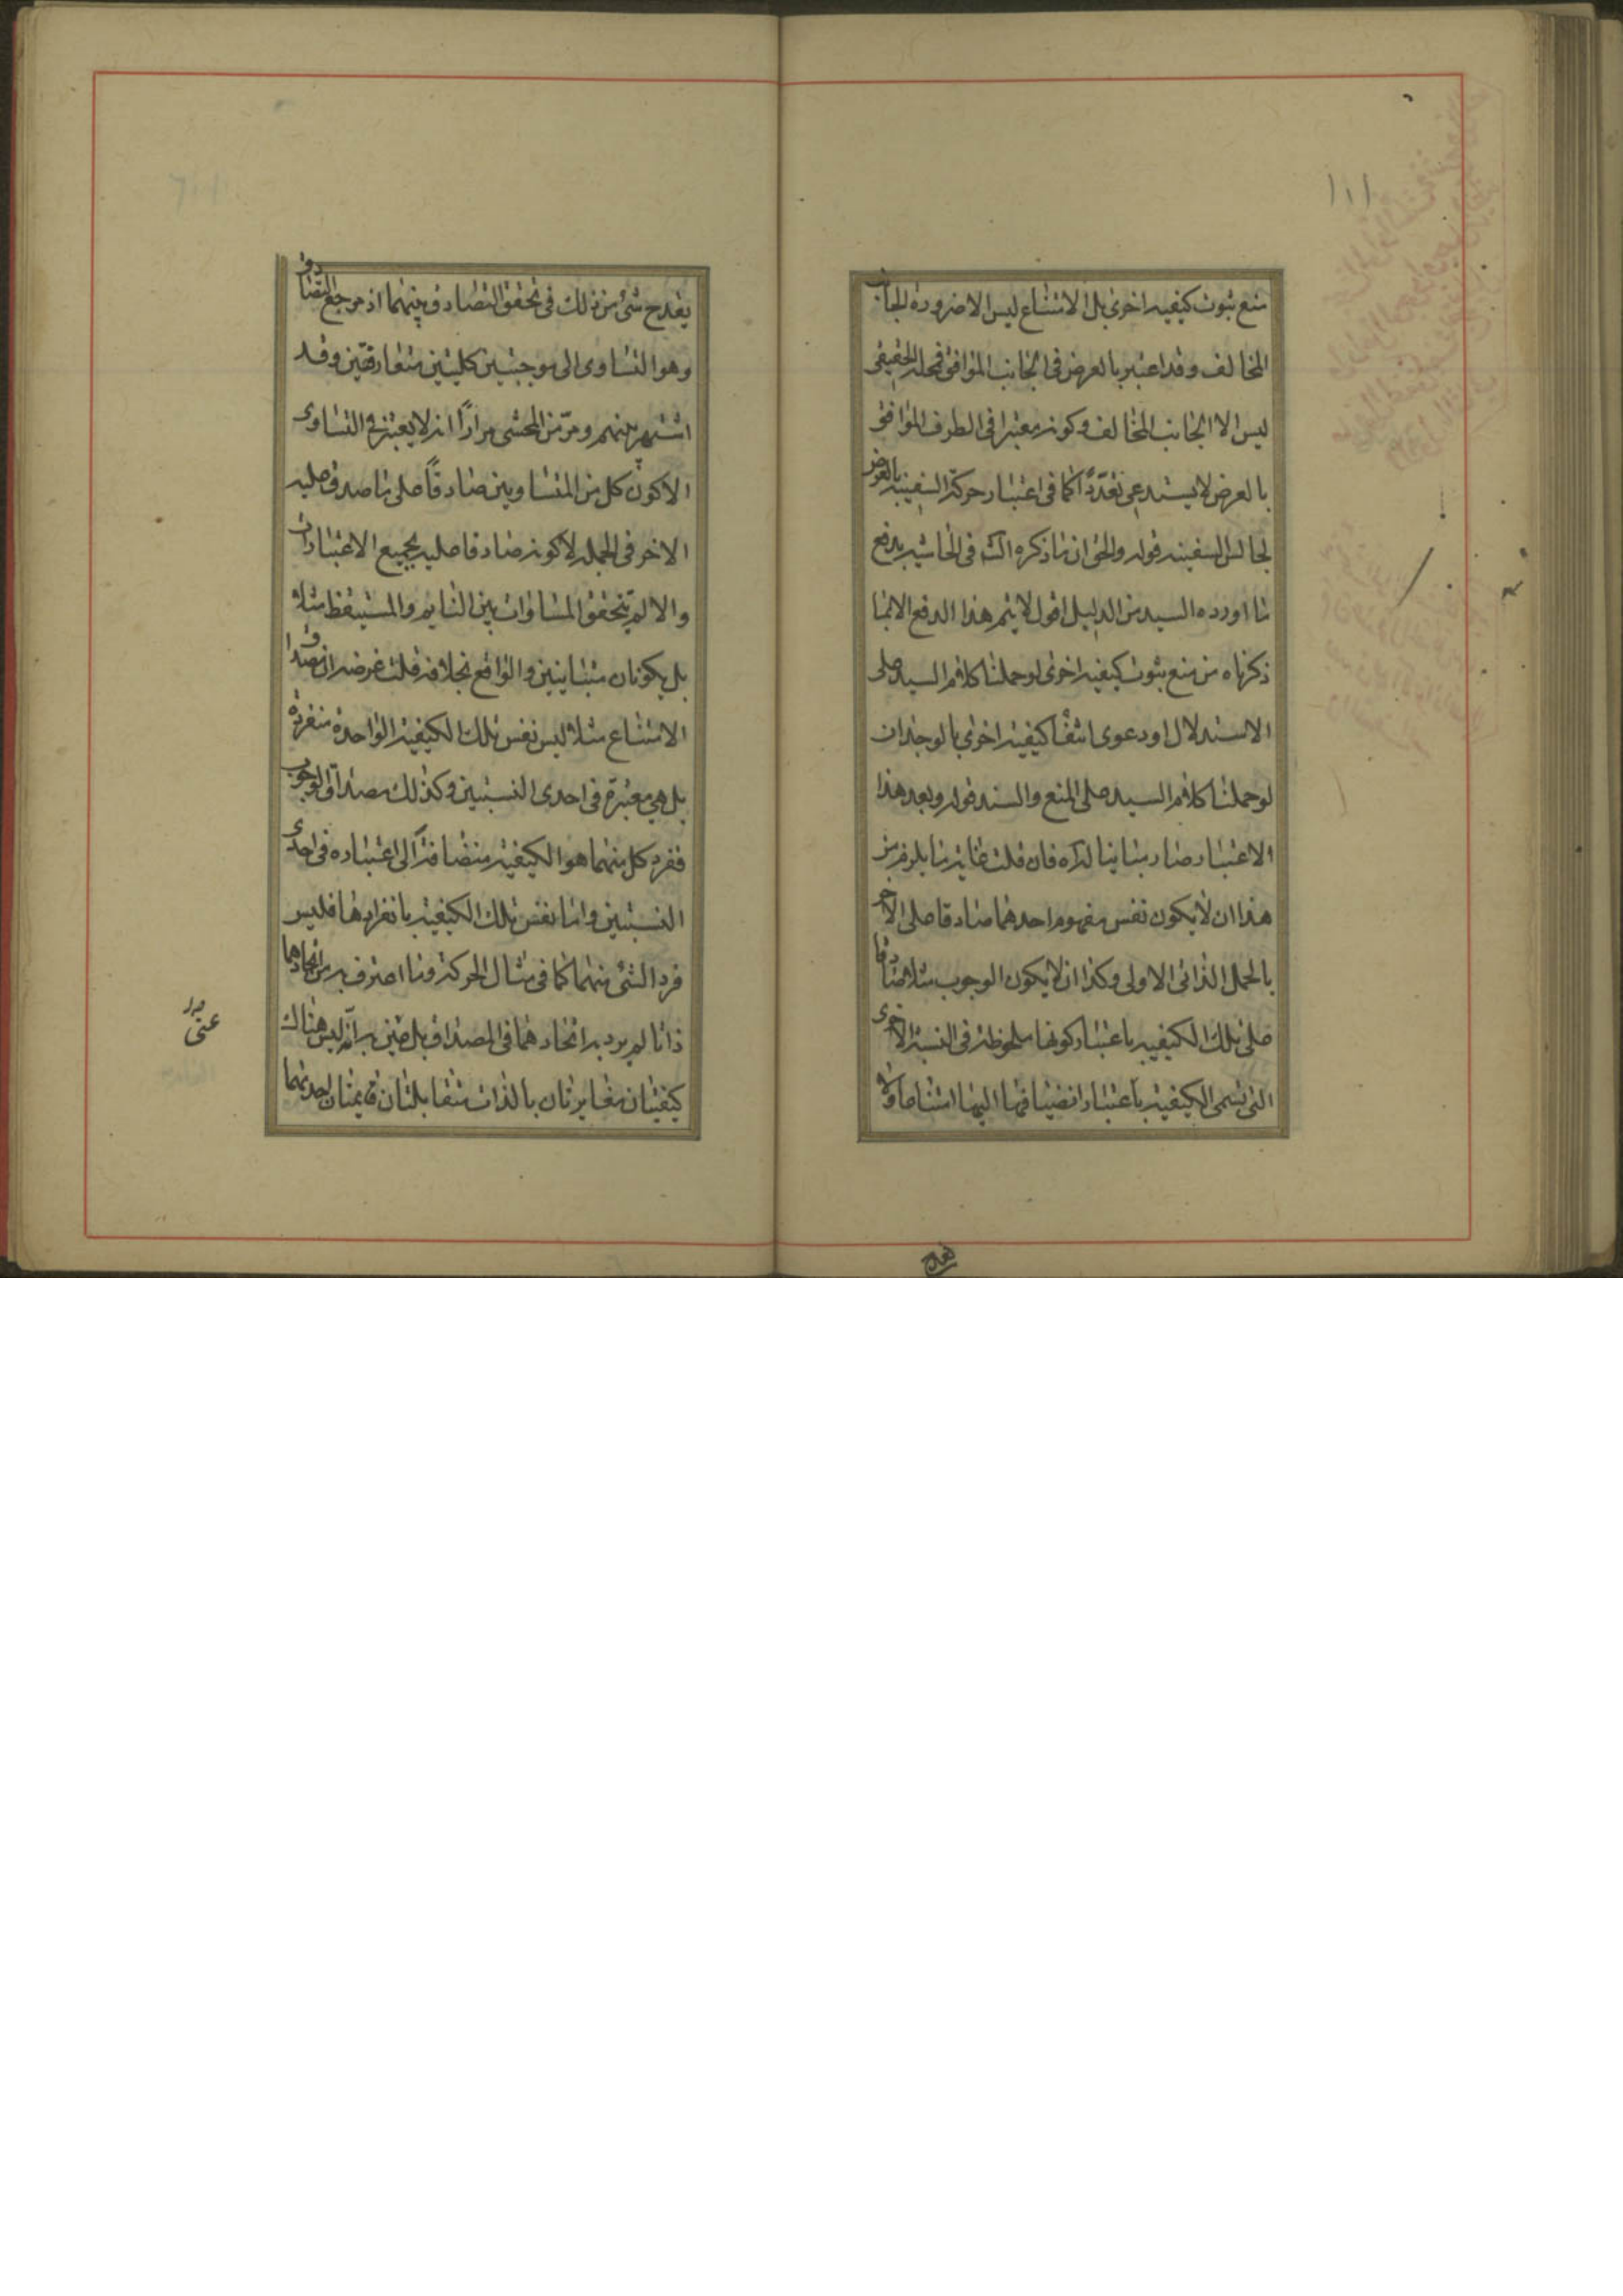 ١١١
منع ثبوت كيفيه اخرى بل الامتناع ليس الا ضرورة الجانب
المخالف وقد اعتبر بالعرض فى الجانب الموافق فمحله الحقيقى
ليس الا الجانب المخالف وكونه معتبرا فى الطرف الموافق
بالعرض لا يستدعى تعدّدًا كما فى اعتبار حركة السفينه بالعرض
لجالس السفينه قوله والحق ان ما ذكره الش فى الحاشيه يدفع
ما اورده السيد من الدليل اقول لا يتم هذا الدفع الا بما
ذكرناه من منع ثبوت كيفيه اخرى لو حملنا كلام السيد على
الاستدلال او دعوى انتفاء كيفيه اخرى بالوجدان
لو حملنا كلام السيد على المنع والسند قوله وبعد هذا
الاعتبار صار مباينا له آه فان قلت غاية ما يلزم من
هذا ان لا يكون نفس مفهوم احدهما صادقا على الآخر
بالحمل الذاتى الاولى وكذا ان لا يكون الوجوب مثلا صادقا
على تلك الكيفيه باعتبار كونها ملحوظة فى النسبة الاخرى
التى تسمى الكيفية باعتبار انضيافها اليها امتناعا ولا
يقدح
يقدح شئ من ذلك فى تحقق التصادق بينهما اذ مرجع التصادق
وهو التساوى الى موجبتين كليتين متعارفتين وقد
اشتهر بينهم ومرّ من المحشى مرارًا انه لا يعتبر فى التساوى
الا كون كل من المتساويين صادقًا على ما صدق عليه
الاخر فى الجمله لا كونه صادقا عليه بجميع الاعتبارات
والا لم يتحقق المساوات بين النايم والمستيقظ مثلا
بل يكونان متباينين والواقع بخلافه قلت غرضه ان مصداق
الامتناع مثلا ليس نفس تلك الكيفية الواحدة منفردة
بل هى معتبرة فى احدى النسبتين وكذلك مصداق الوجوب
ففرد كل منهما هو الكيفية منضافة الى اعتباره فى احدى
النسبتين واما نفس تلك الكيفية بانفرادها فليس
فرد الشئ منهما كما فى مثال الحركة وما اعترف به من اتحادهما
ذاتا لم يرد به اتحادهما فى المصداق بل عنى به انه ليس هناك
كيفيتان متغايرتان بالذات متقابلتان قايمتان احدهما
عنى